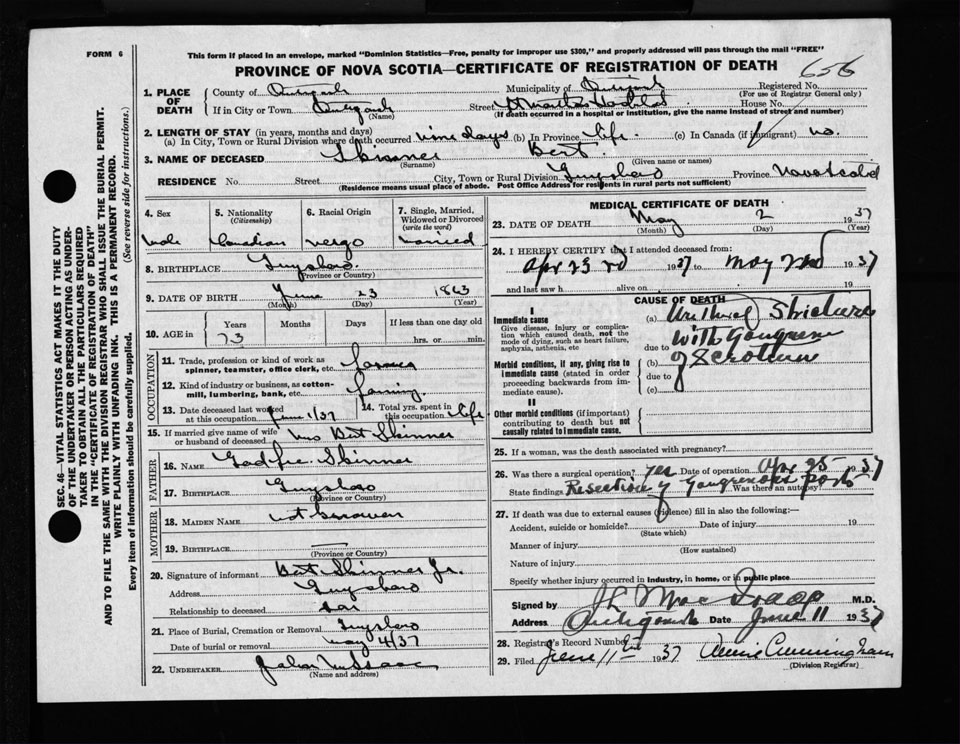 FORM 6
This form if placed in an envelope, marked "Dominion Statistics—Free, penalty for improper use $300," and properly addressed will pass through the mail "FREE"
PROVINCE OF NOVA SCOTIA—CERTIFICATE OF REGISTRATION OF DEATH
656
SEC. 46 — VITAL STATISTICS ACT MAKES IT THE DUTY
OF THE UNDERTAKER OR PERSON ACTING AS UNDER-
TAKER TO OBTAIN ALL THE PARTICULARS REQUIRED
IN THE "CERTIFICATE OF REGISTRATION OF DEATH"
AND TO FILE THE SAME WITH THE DIVISION REGISTRAR WHO SHALL ISSUE THE BURIAL PERMIT.
WRITE PLAINLY WITH UNFADING INK. THIS IS A PERMANENT RECORD.
Every item of information should be carefully supplied. (See reverse side for instructions.)
1. PLACE OF DEATH
County of Antigonish Municipality of Antigonish Registered No.
(For use of Registrar General only)
If in City or Town Antigonish Street St Martha's Hospital House No.
(Name) (If death occurred in a hospital or institution, give the name instead of street and number)
2. LENGTH OF STAY (in years, months and days)
(a) In City, Town or Rural Division where death occurred nine days (b) In Province life. (c) In Canada (if immigrant) no.
3. NAME OF DECEASED Skinner Bert.
(Surname) (Given name or names)
RESIDENCE No. Street City, Town or Rural Division Guysboro Province Nova Scotia
(Residence means usual place of abode. Post Office Address for residents in rural parts not sufficient)
4. Sex
male
5. Nationality (Citizenship)
Canadian
6. Racial Origin
negro
7. Single, Married, Widowed or Divorced (write the word)
married
8. BIRTHPLACE Guysboro.
(Province or Country)
9. DATE OF BIRTH June 23 1863
(Month) (Day) (Year)
10. AGE in Years Months Days If less than one day old
73 hrs. or min.
OCCUPATION
11. Trade, profession or kind of work as spinner, teamster, office clerk, etc. farmer
12. Kind of industry or business, as cotton-mill, lumbering, bank, etc. farming
13. Date deceased last worked at this occupation June 1/37
14. Total yrs. spent in this occupation life
15. If married give name of wife or husband of deceased Mrs Bert Skinner
FATHER
16. NAME Godfree Skinner
17. BIRTHPLACE Guysboro
(Province or Country)
MOTHER
18. MAIDEN NAME not known
19. BIRTHPLACE —
(Province or Country)
20. Signature of informant Bert Skinner Jr.
Address Guysboro
Relationship to deceased son
21. Place of Burial, Cremation or Removal Guysboro
Date of burial or removal May 4/37
22. UNDERTAKER
(Name and address)
MEDICAL CERTIFICATE OF DEATH
23. DATE OF DEATH May 2 1937
(Month) (Day) (Year)
24. I HEREBY CERTIFY that I attended deceased from:
Apr 23rd 1937 to May 2nd 1937
and last saw h alive on 19
CAUSE OF DEATH
I
Immediate cause
Give disease, injury or complication which caused death, not the mode of dying, such as heart failure, asphyxia, asthenia, etc
(a) Urethral Stricture
due to with Gangrene
Morbid conditions, if any, giving rise to immediate cause (stated in order proceeding backwards from immediate cause).
(b) of Scrotum
due to
(c)
II
Other morbid conditions (if important) contributing to death but not causally related to immediate cause.
25. If a woman, was the death associated with pregnancy?
26. Was there a surgical operation? yes Date of operation Apr 25 1937
State findings Resection of Gangrenous parts Was there an autopsy?
27. If death was due to external causes (violence) fill in also the following:—
Accident, suicide or homicide? Date of injury 19
(State which)
Manner of injury
(How sustained)
Nature of injury
Specify whether injury occurred in industry, in home, or in public place
Signed by M.D.
Address Antigonish Date June 11 1937
28. Registrar's Record Number
29. Filed June 11th 1937 Annie Cunningham
(Division Registrar)